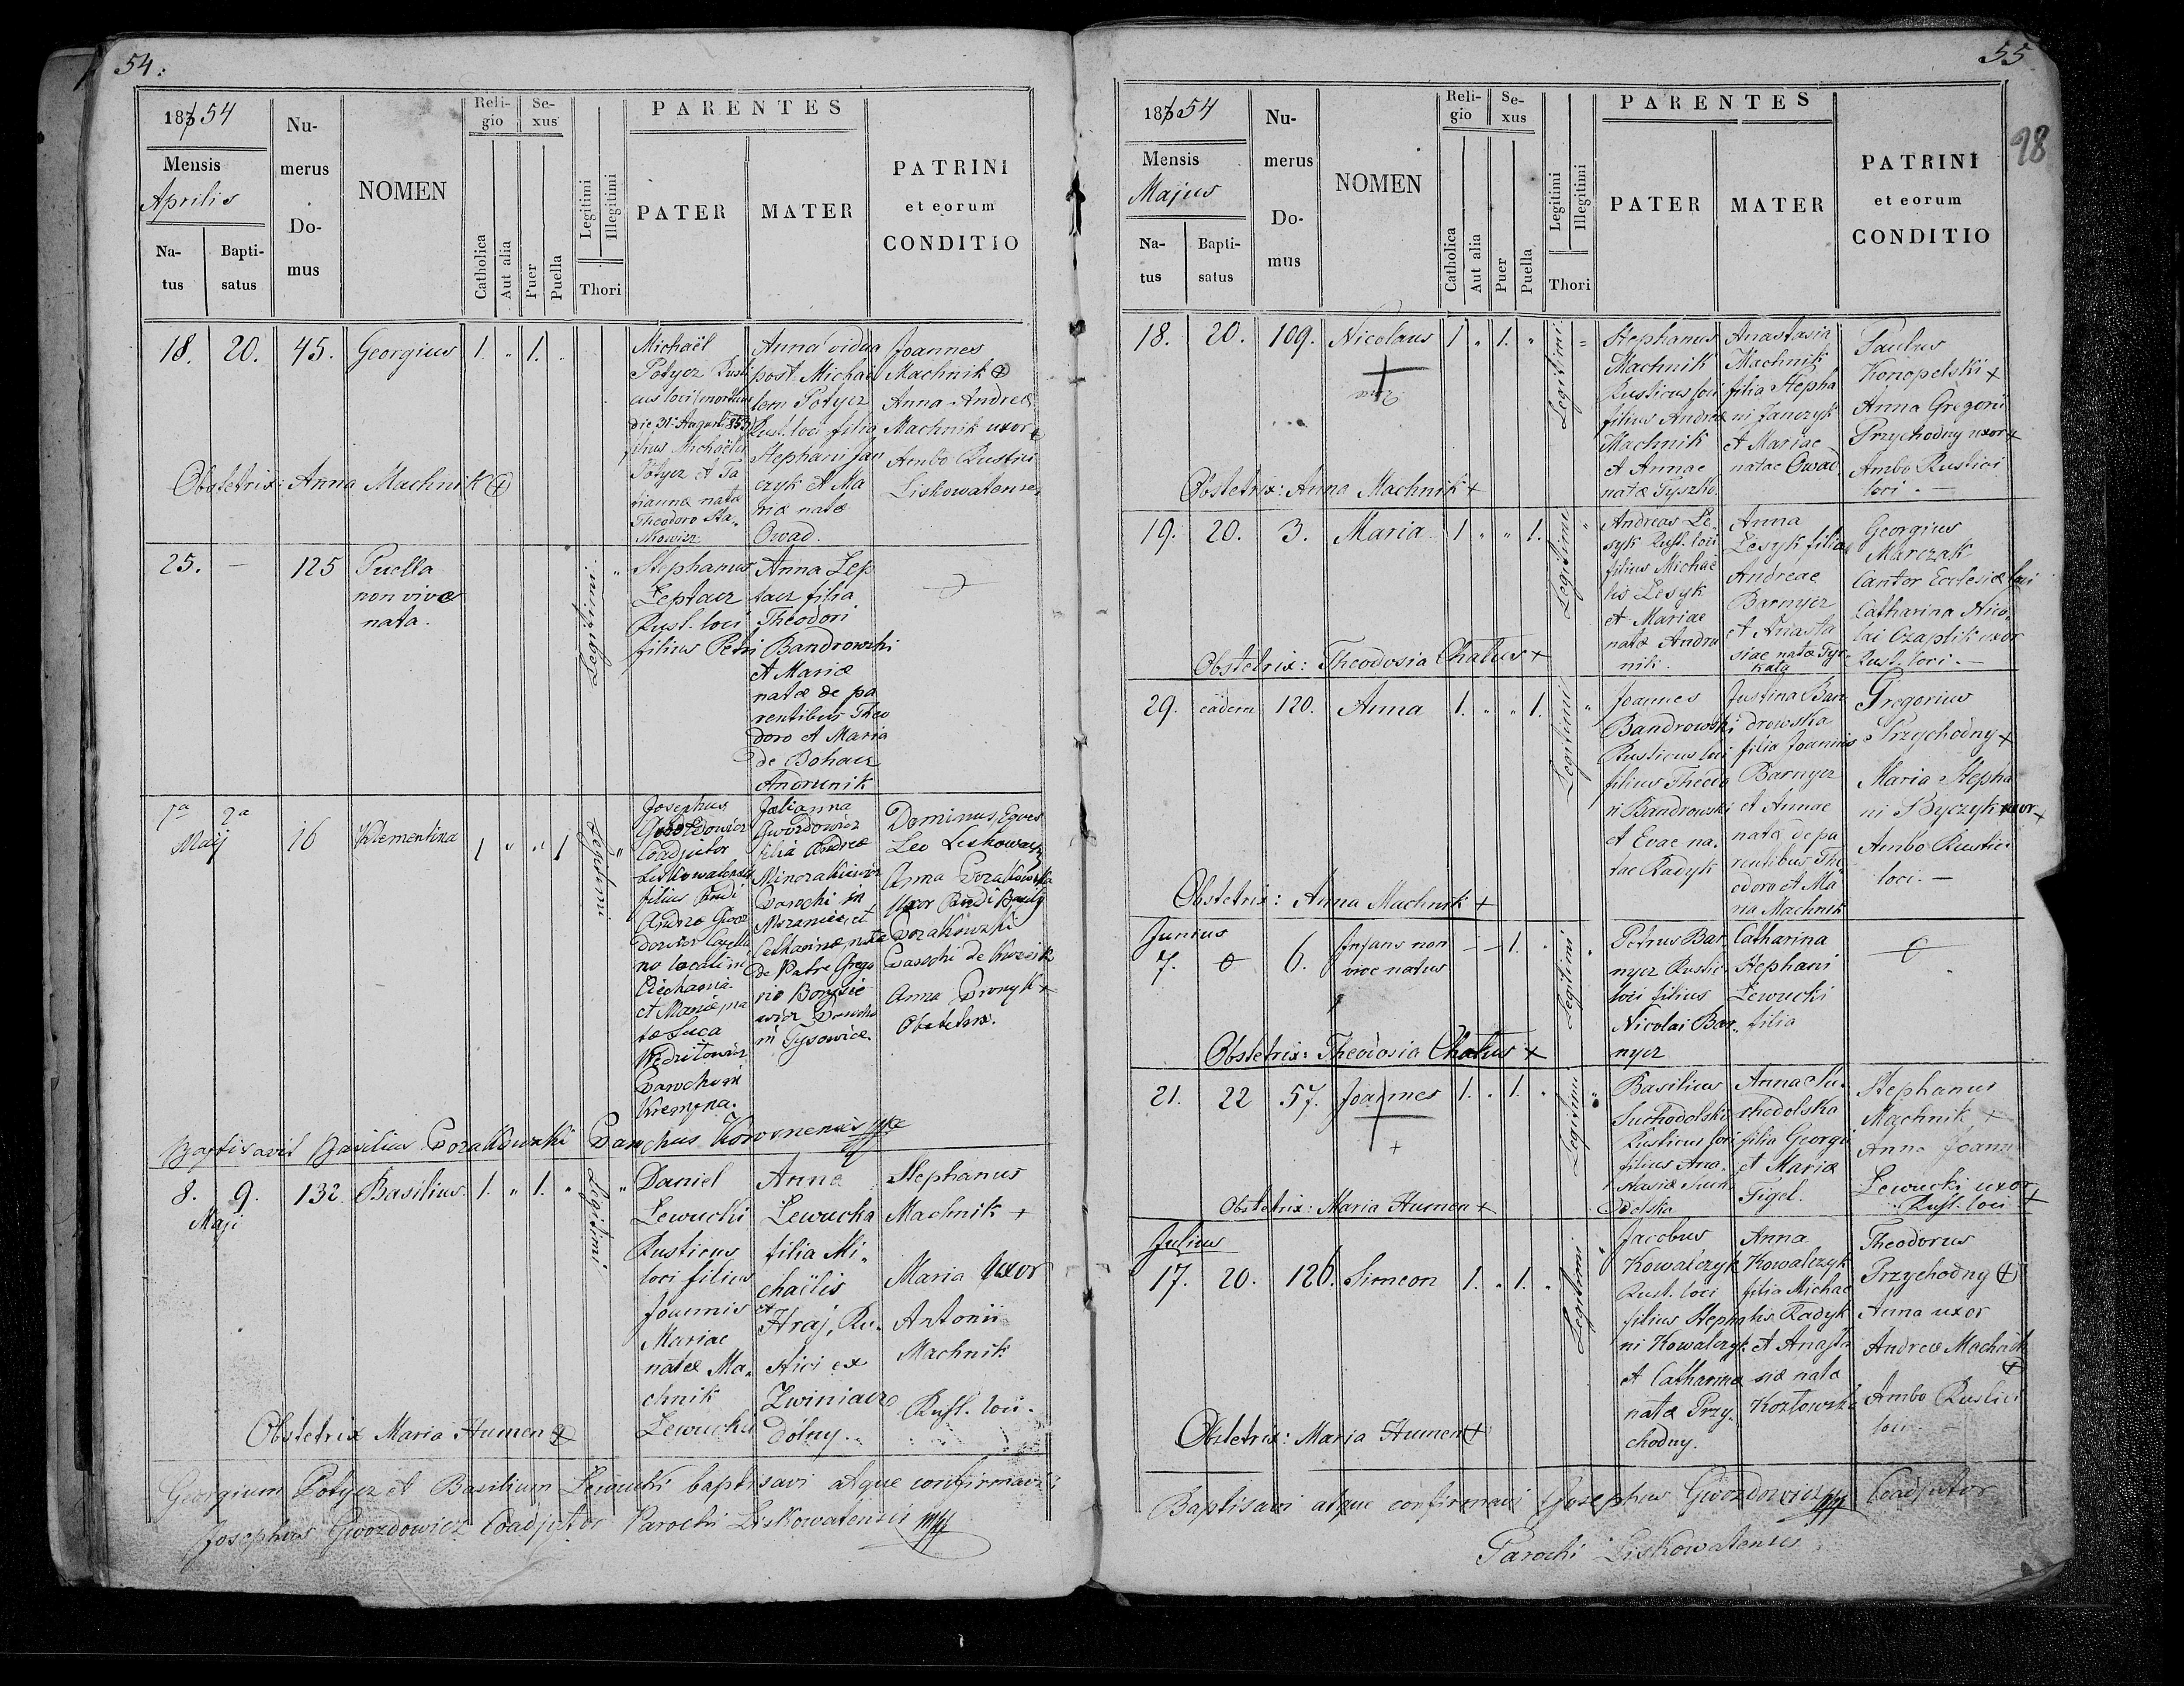 54.
1854
Mensis
Aprilis
Na-
tus
Bapti-
satus
Nu-
merus
Do-
mus
NOMEN
Reli-
gio
Catholica
Aut alia
Se-
xus
Puer
Puella
Legitimi
Illegitimi
Thori
PARENTES
PATER
MATER
PATRINI
et eorum
CONDITIO
18. 20. 45. Georgius 1. „ 1. „
Michaël
Potycz Rusti
cus loci (mortuus
die 31. Augusti 853)
filius Michaëlis
Potycz et Ta
tiannæ natæ
Theodoro Sta„
Anna vidua
post Michae
lem Potycz
Rust. loci filia
Stephani Jan
czyk et Ma
riæ natæ
Owad.
Joannes
Machnik +
Anna Andreæ
Machnik uxor +
Ambo Rustici
Liskowatenses
Obstetrix: Anna Machnik +
25. — 125 Puella
non vivæ
nata.
Legitimi
Stephanus
Leptacz
Rust. loci
filius Petri
Anna Lep
tacz filia
Theodori
Bandrowski
et Mariæ
natæ de pa
rentibus Theo
doro et Maria
de Bohacz
Andrunik
1a 2a
Maij 16 Klementina 1 „ „ 1
Legitimi
Josephus
Gwozdowicz
Coadjutor
Liskowatensis
filius
Andreæ Gwoz
dowicz Capella
no locali in
Ciechania
et Mariæ na
tæ Luca
Parocho in
Krempna.
Julianna
Gwozdowicz
filia Andreæ
Parochi in
Mszaniec et
Catharinæ natæ
de Patre Grego
rio Borysie
wicz Parocho
in Tysowice.
Dominus Eques
Leo Liskowacki
Anna
Uxor
Parochi de
Anna Pronyk +
Obstetrix.
Baptisavit Basilius Parochus
8. 9. 132. Basilius. 1. „ 1. „
Maji
Legitimi
Daniel
Lewucki
Rusticus
loci filius
Joannis et
Mariae
natæ Ma„
chnik
Lewucki
Anna
Lewucka
filia Mi„
chaëlis
Hraj, Ru„
stici ex
Zwiniacz
dólny.
Stephanus
Machnik +
Maria uxor
Antonii
Machnik
Rust. loci.
Obstetrix Maria Humen +
Georgium Potycz et Basilium Lewucki baptisavi atque confirmavi
Josephus Gwozdowicz Coadjutor Parochi Liskowatensis mp
55
98
1854
Mensis
Majus
Na-
tus
Bapti-
satus
Nu-
merus
Do-
mus
NOMEN
Reli-
gio
Catholica
Aut alia
Se-
xus
Puer
Puella
Legitimi
Illegitimi
Thori
PARENTES
PATER
MATER
PATRINI
et eorum
CONDITIO
18. 20. 109. Nicolaus 1 „ 1. „
Legitimi
Stephanus
Machnik
Rusticus loci
filius Andreæ
Machnik
et Annae
natæ Tyszko.
Anastasia
Machnik
filia Stepha
ni Janczyk
et Mariae
natae Owad.
Paulus
Konopelski +
Anna Gregorii
Przychodny uxor +
Ambo Rustici
loci. —
Obstetrix: Anna Machnik +
19. 20. 3. Maria. 1. „ „ 1.
Legitimi
Andreas Le„
syk Rust. loci.
filius Michae
lis Lesyk
et Mariae
natæ Andru
nik.
Anna
Lesyk filia
Andreae
Barnycz
et Anasta
siae natæ Tyr
kala
Georgius
Marczak
Cantor Ecclesiæ loci
Catharina Nico„
lai Czaplik uxor
Rust. loci. —
Obstetrix: Theodosia Chatus +
29. eâdem 120. Anna 1. „ „ 1.
Legitimi
Joannes
Bandrowski
Rusticus loci
filius Theodo
ri Bandrowski
et Evae na„
tae Radyk
Justina Ban
drowska
filia Joannis
Barnycz
et Annae
natæ de pa
rentibus The
odoro et Ma
ria Machnik
Gregorius
Przychodny +
Maria Stepha
ni Byczyk uxor +
Ambo Rustici
loci. —
Obstetrix: Anna Machnik +
Junius
7. 0 6. Infans non
vive natus — — 1. „
Legitimi
Petrus Bar„
nycz Rustic.
loci filius
Nicolai Bar„
nycz
Catharina
Stephani
Lewucki
filia
Obstetrix: Theodosia Chatus +
21. 22 57. Joannes 1. „ 1. „
Legitimi
Basilius
Suchodolski
Rusticus loci
filius Ana„
stasiæ Sucho
dolska
Anna Su„
chodolska
filia Georgii
et Mariæ
Figel.
Stephanus
Machnik +
Anna Joannis
Lewucki uxor
Rust. loci +
Obstetrix: Maria Humen +
Julius
17. 20. 126. Simeon 1. „ 1. „
Legitimi
Jacobus
Kowalczyk
Rust. loci
filius Stepha
ni Kowalczyk
et Catharinæ
natæ Przy„
chodny.
Anna
Kowalczyk
filia Michae
lis Radyk
et Anasta
siæ natæ
Kozłowska
Theodorus
Przychodny +
Anna uxor
Andreæ Machnik
+
Ambo Rustici
loci
Obstetrix: Maria Humen +
Baptisavi atque confirmavi Josephus Gwozdowicz mp Coadjutor
Parochi Liskowatensis